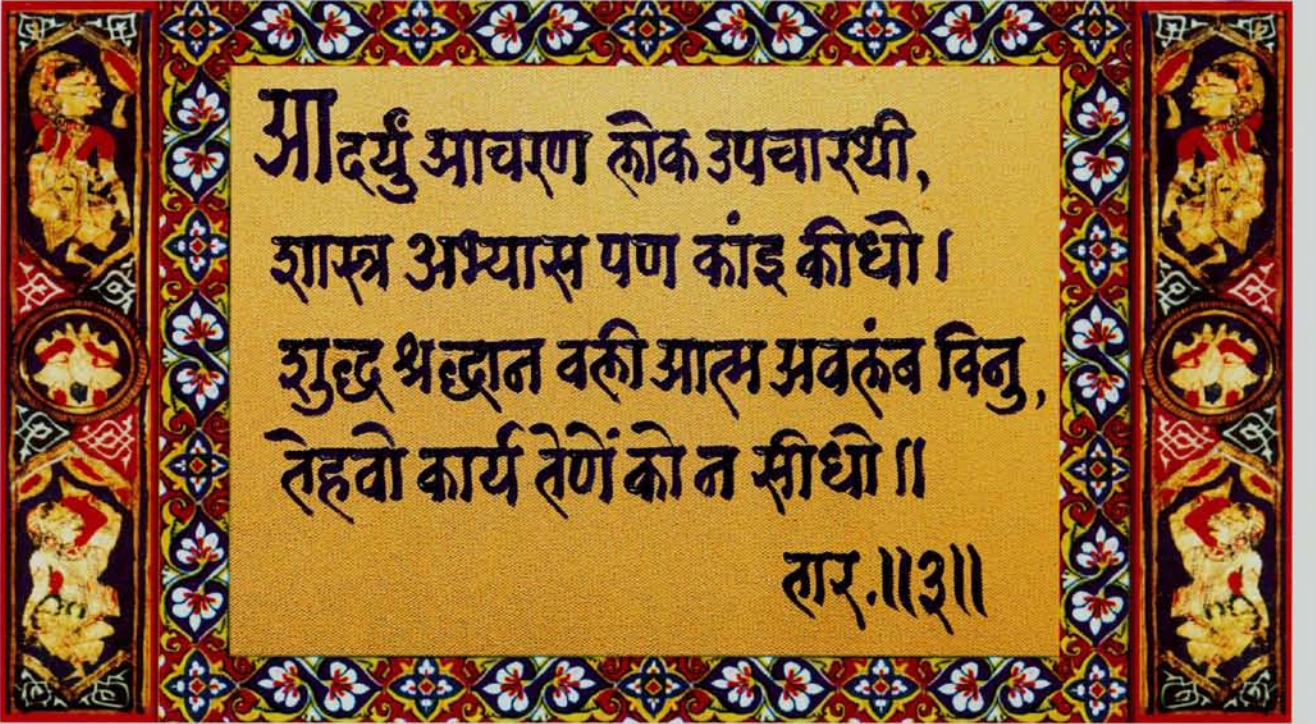 आदर्युं आचरण लोक उपचारथी,
शास्त्र अभ्यास पण कांइ कीधो।
शुद्ध श्रद्धान वली आत्म अवलंब विनु,
तेहवो कार्य तेणें को न सीधो॥
तार.॥३॥